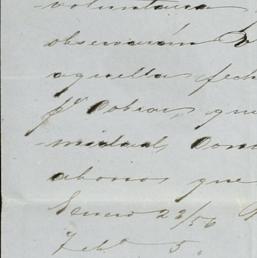 voluntaria
observarán
aquella fech
pᵃ Cobrar que
mitad, Com
abonos que
Enero 23/56
Feb° 5.